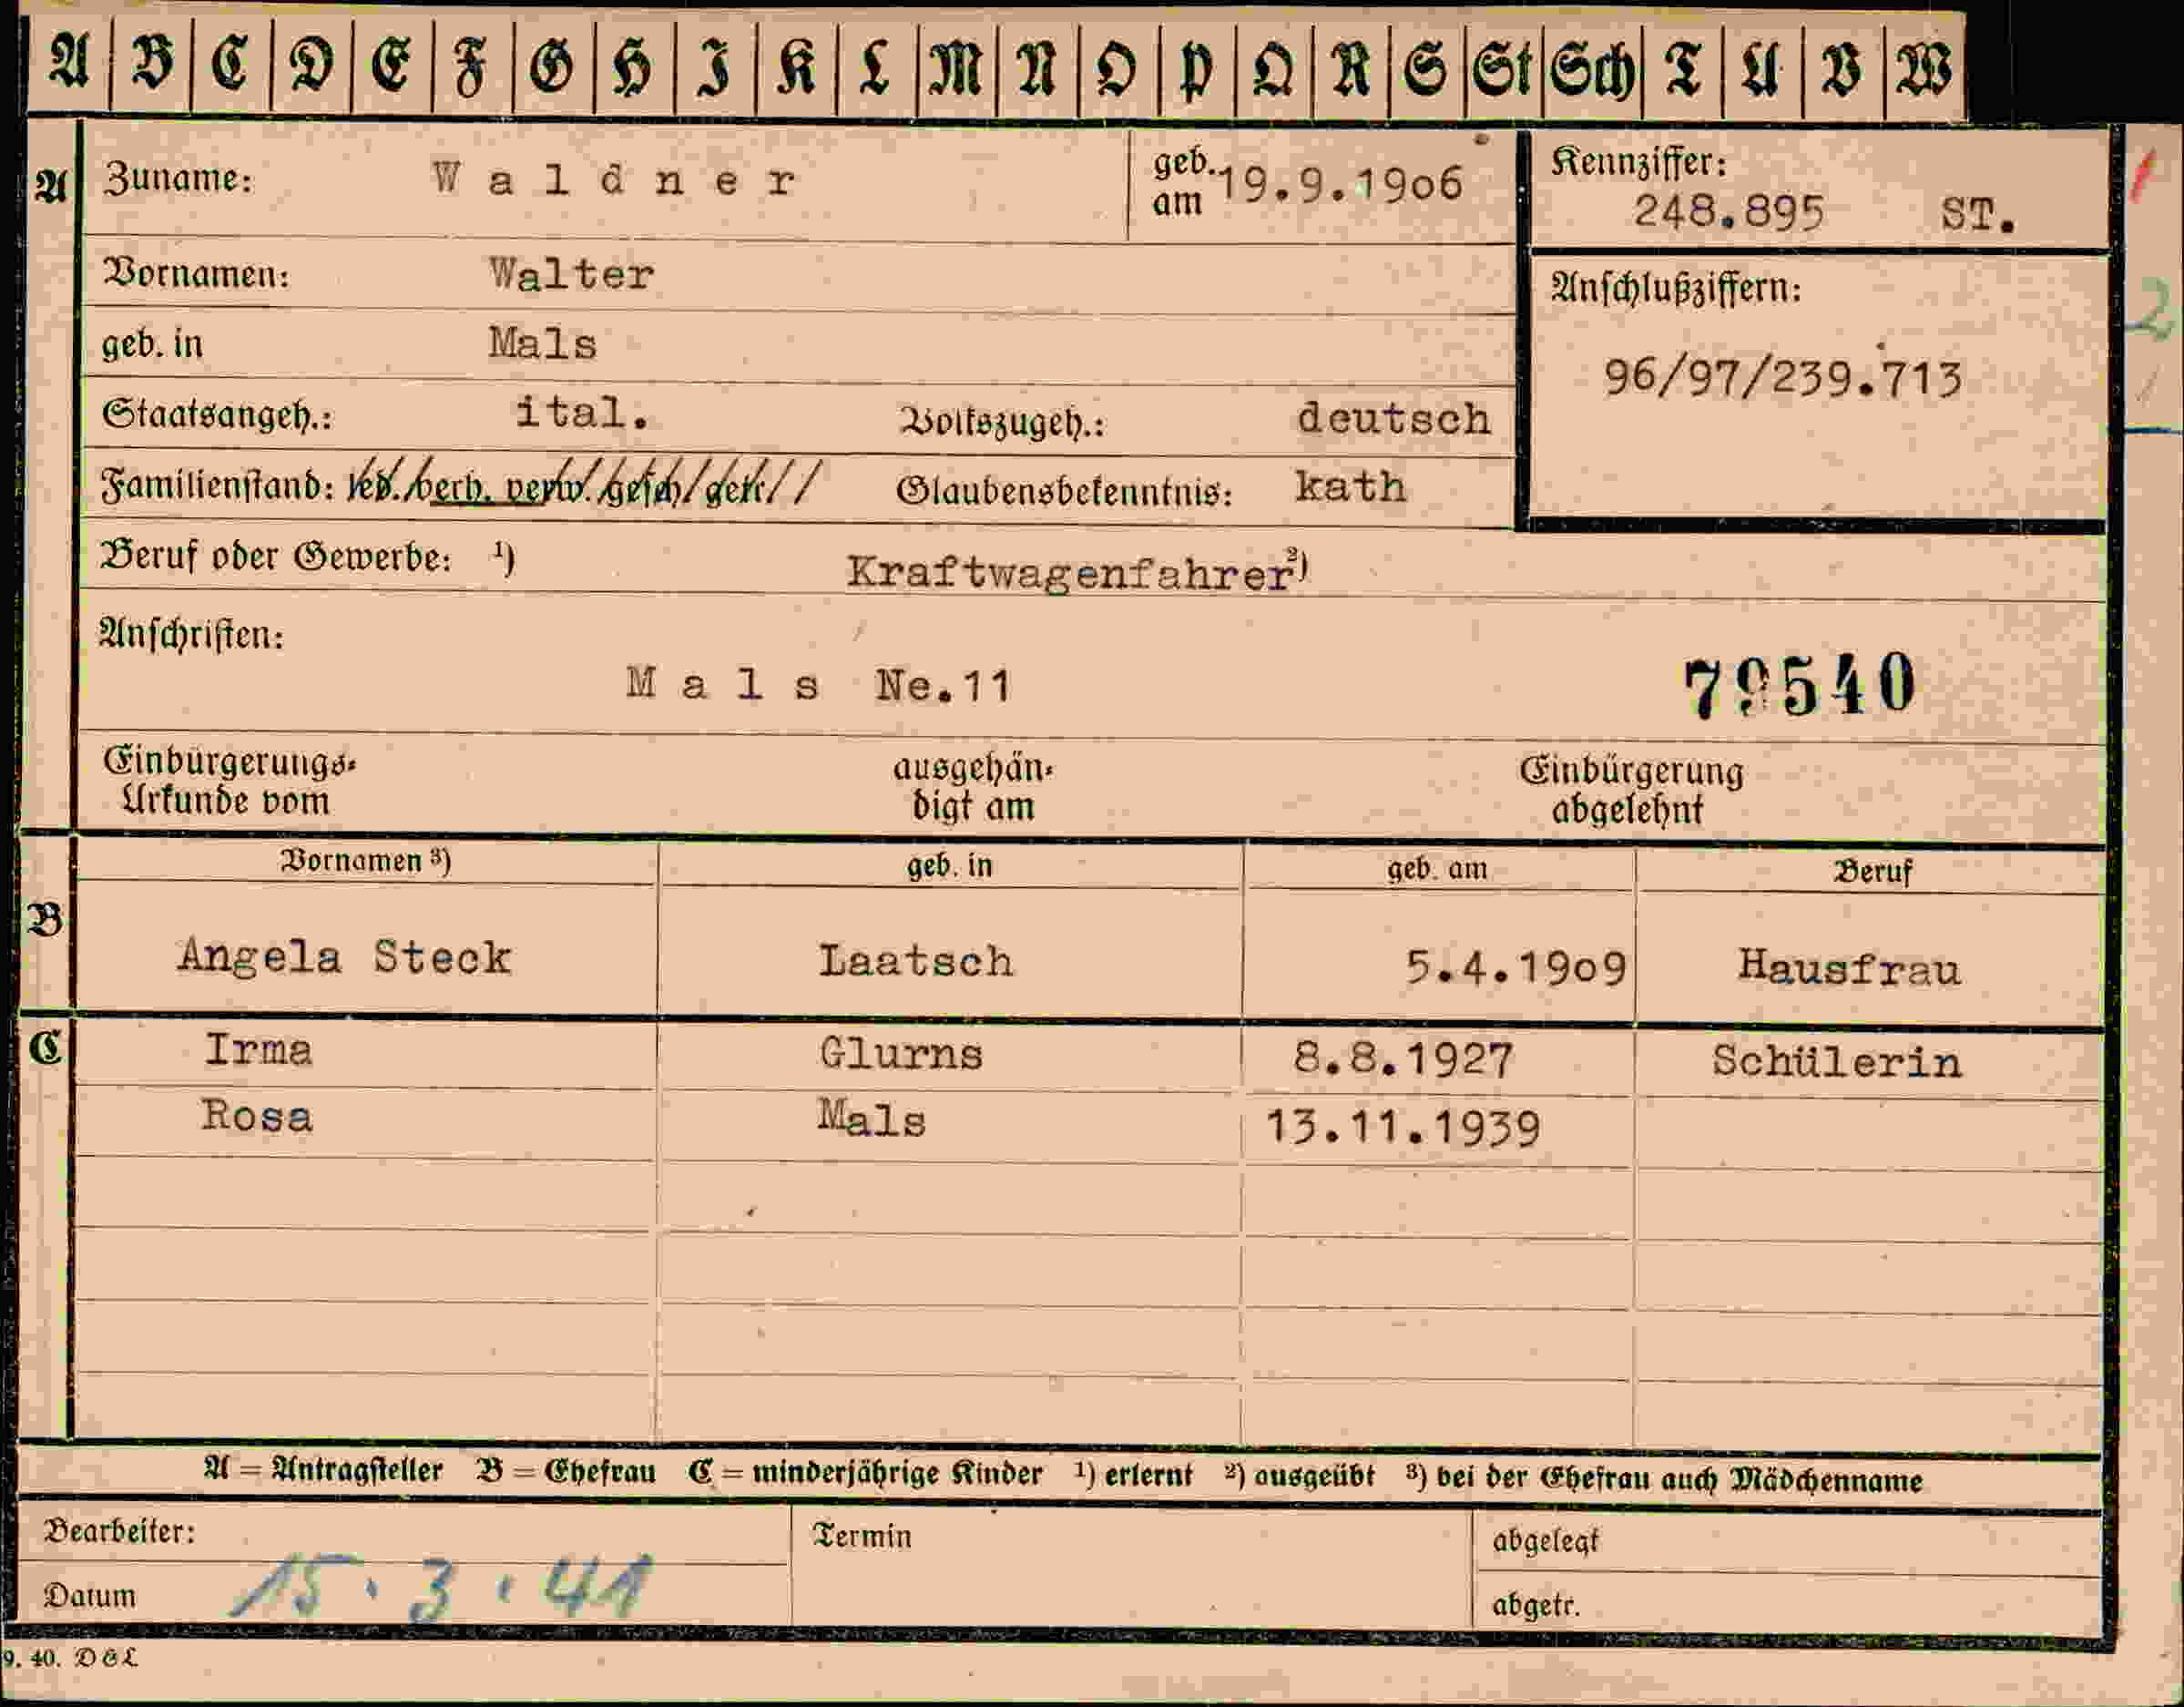 A B C D E F G H I K L M N O P Q R S St Sch T U V W
A Zuname: Waldner geb. am 19.9.19o6 Kennziffer: 248.895 ST.
Vornamen: Walter
geb. in Mals
Anschlußziffern:
96/97/239.713
Staatsangeh.: ital. Volkszugeh.: deutsch
Familienstand: led. verh. verw. gesch. getr. Glaubensbekenntnis: kath
Beruf oder Gewerbe: ¹) Kraftwagenfahrer ²)
Anschriften:
Mals Ne.11 79540
Einbürgerungs- ausgehän- Einbürgerung
Urkunde vom digt am abgelehnt
Vornamen ³) geb. in geb. am Beruf
B Angela Steck Laatsch 5.4.19o9 Hausfrau
C Irma Glurns 8.8.1927 Schülerin
Rosa Mals 13.11.1939
A = Antragsteller B = Ehefrau C = minderjährige Kinder ¹) erlernt ²) ausgeübt ³) bei der Ehefrau auch Mädchenname
Bearbeiter: Termin abgelegt
Datum 15.3.41 abgetr.
9. 40. DGL
1
2